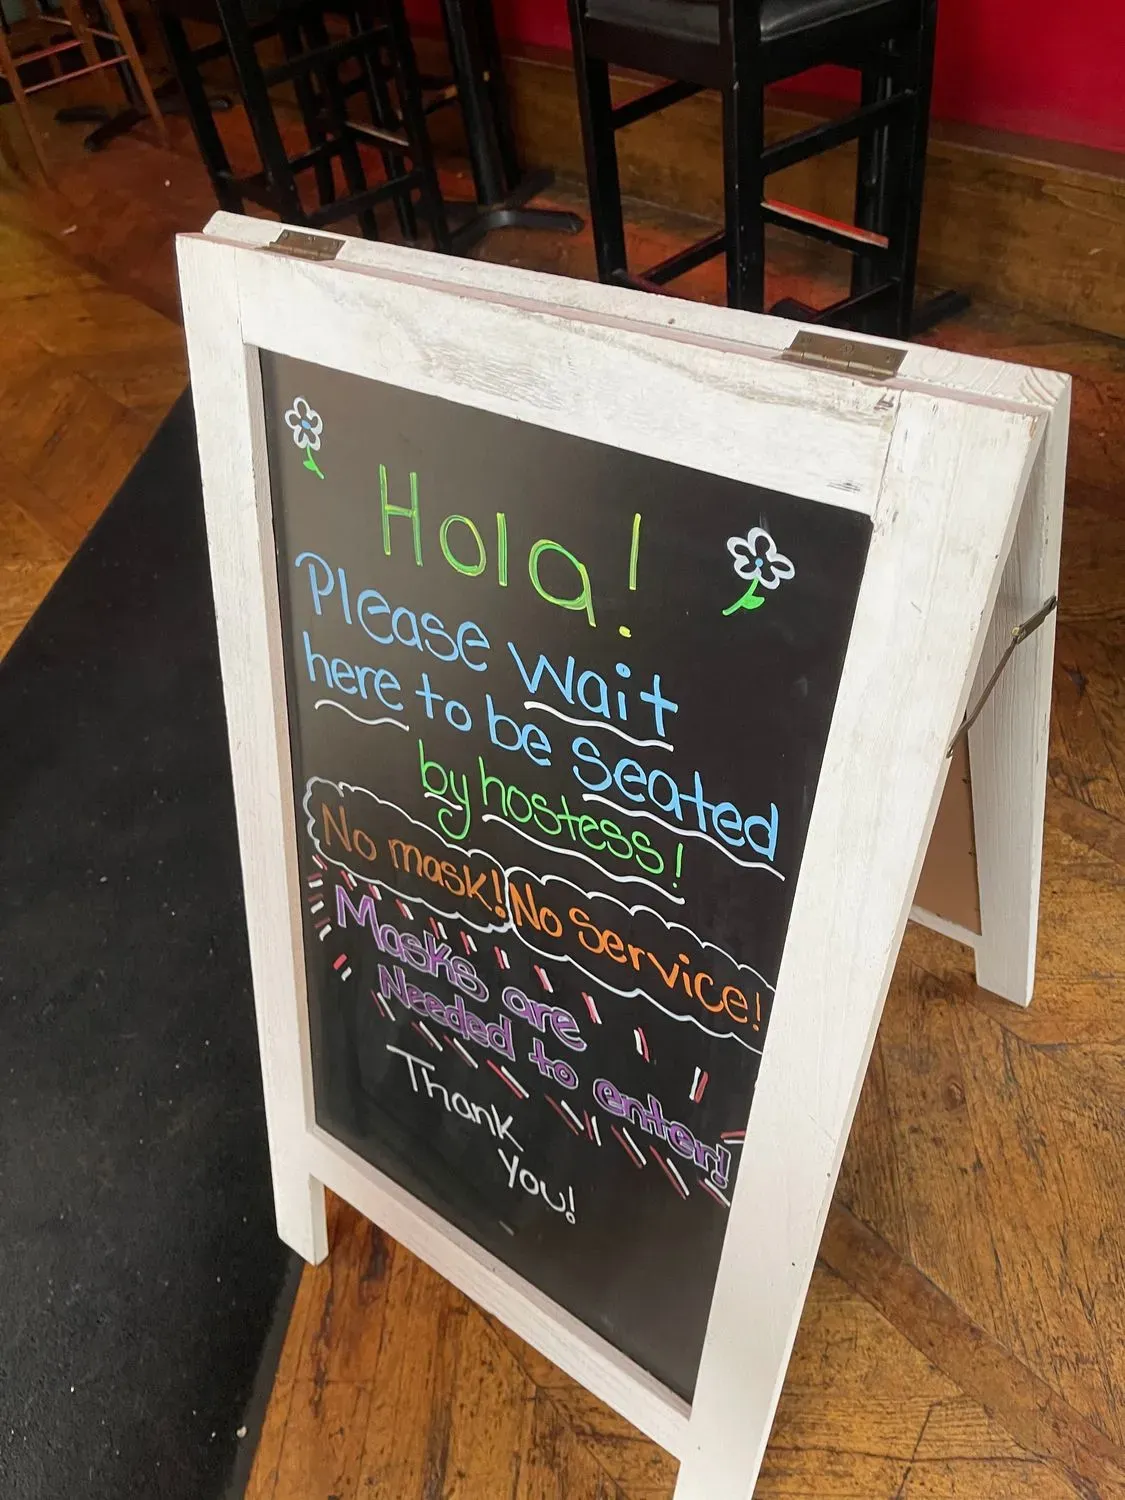 Hola!
Please wait
here to be seated
by hostess!
No mask! No Service!
Masks are
Needed to enter!
Thank
you!